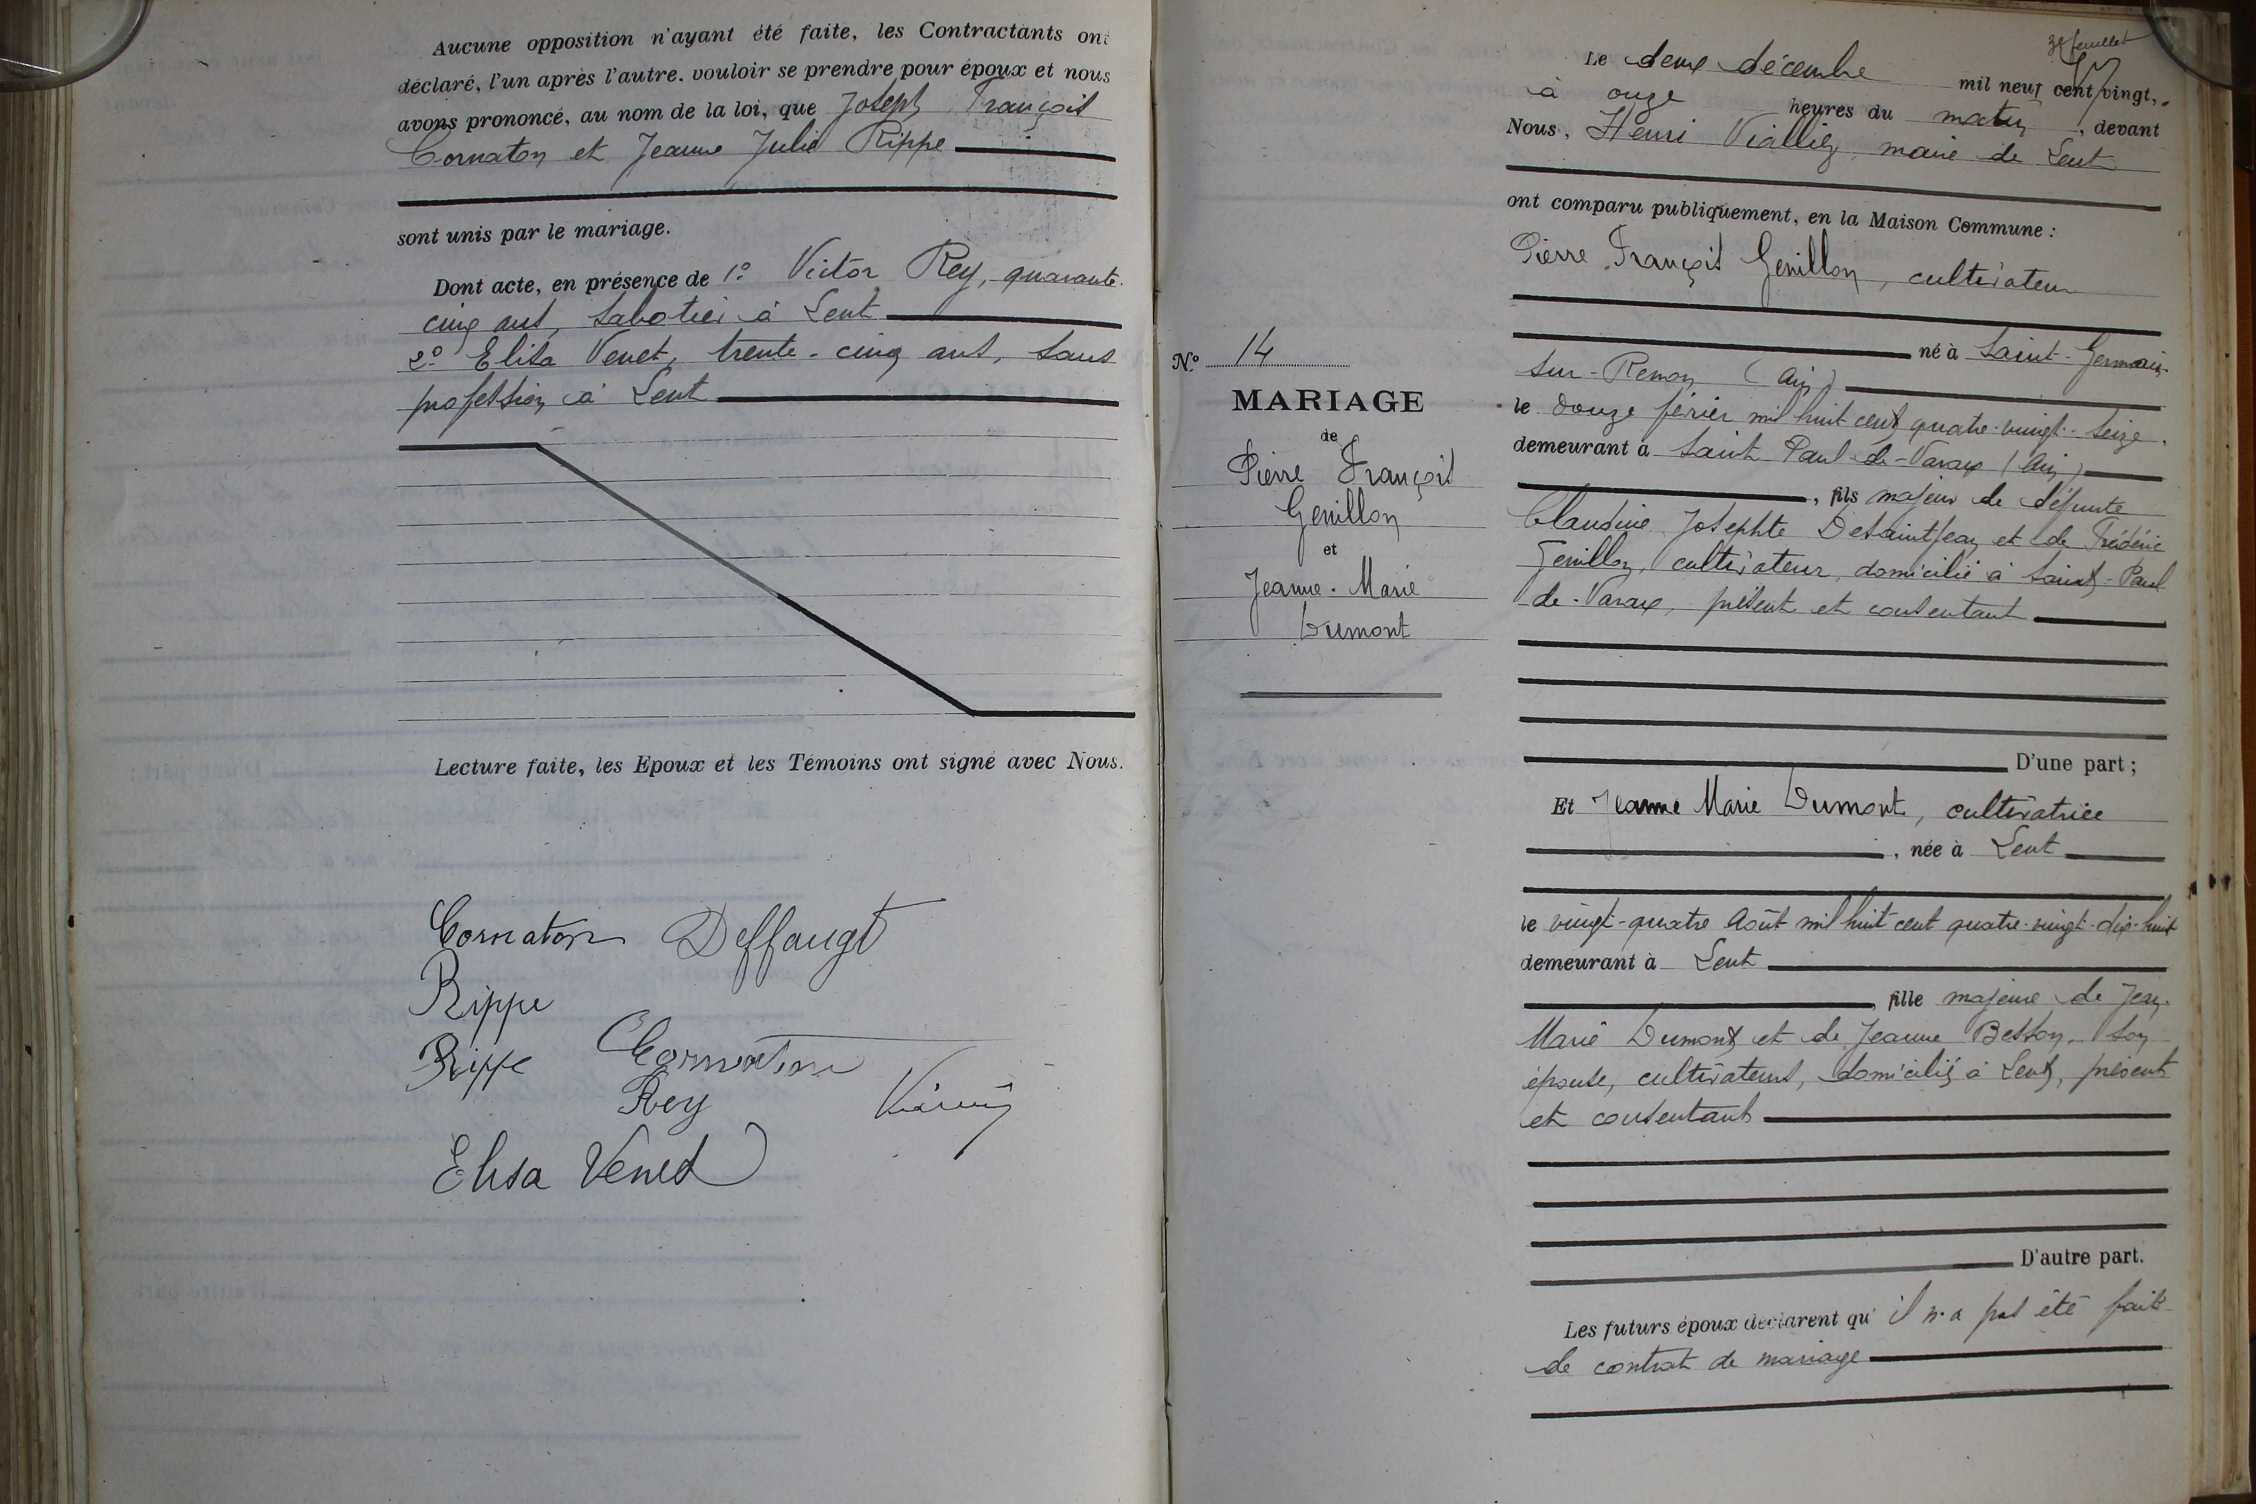 Aucune opposition n'ayant été faite, les Contractants ont
déclaré, l'un après l'autre. vouloir se prendre pour époux et nous
avons prononcé, au nom de la loi, que Joseph François
Cornaton et Jeanne Julie Rippe
sont unis par le mariage.
Dont acte, en présence de 1º Victor Rey, quarante-
cinq ans, sabotier à Lent
2º Elisa Venet, trente-cinq ans, sans
profession à Lent
Lecture faite, les Epoux et les Témoins ont signé avec Nous.
Cornaton Deffaugt
Rippe
Rippe Cornaton
Rey
Elisa Venet
Nº 14
MARIAGE
de
Pierre François
Genillon
et
Jeanne-Marie
Dumont
feuillet
Le deux décembre mil neuf cent vingt,
à onze heures du matin, devant
Nous, Henri Viallier, maire de Lent
ont comparu publiquement, en la Maison Commune :
Pierre François Genillon, cultivateur
né à Saint-Germain-
sur-Renon (Ain)
le douze février mil huit cent quatre-vingt-seize
demeurant à Saint Paul-de-Varax (Ain)
, fils majeur de défunte
Claudine Josephte Desaintjean et de Frédéric
Genillon, cultivateur, domicilié à Saint-Paul
de-Varax, présent et consentant
D'une part ;
Et Jeanne Marie Dumont, cultivatrice
, née à Lent
le vingt-quatre août mil huit cent quatre-vingt-dix-huit
demeurant à Lent
, fille majeure de Jean-
Marie Dumont et de Jeanne Besson, son
épouse, cultivateurs, domiciliés à Lent, présents
et consentants
D'autre part.
Les futurs époux déclarent qu'il n'a pas été fait
de contrat de mariage